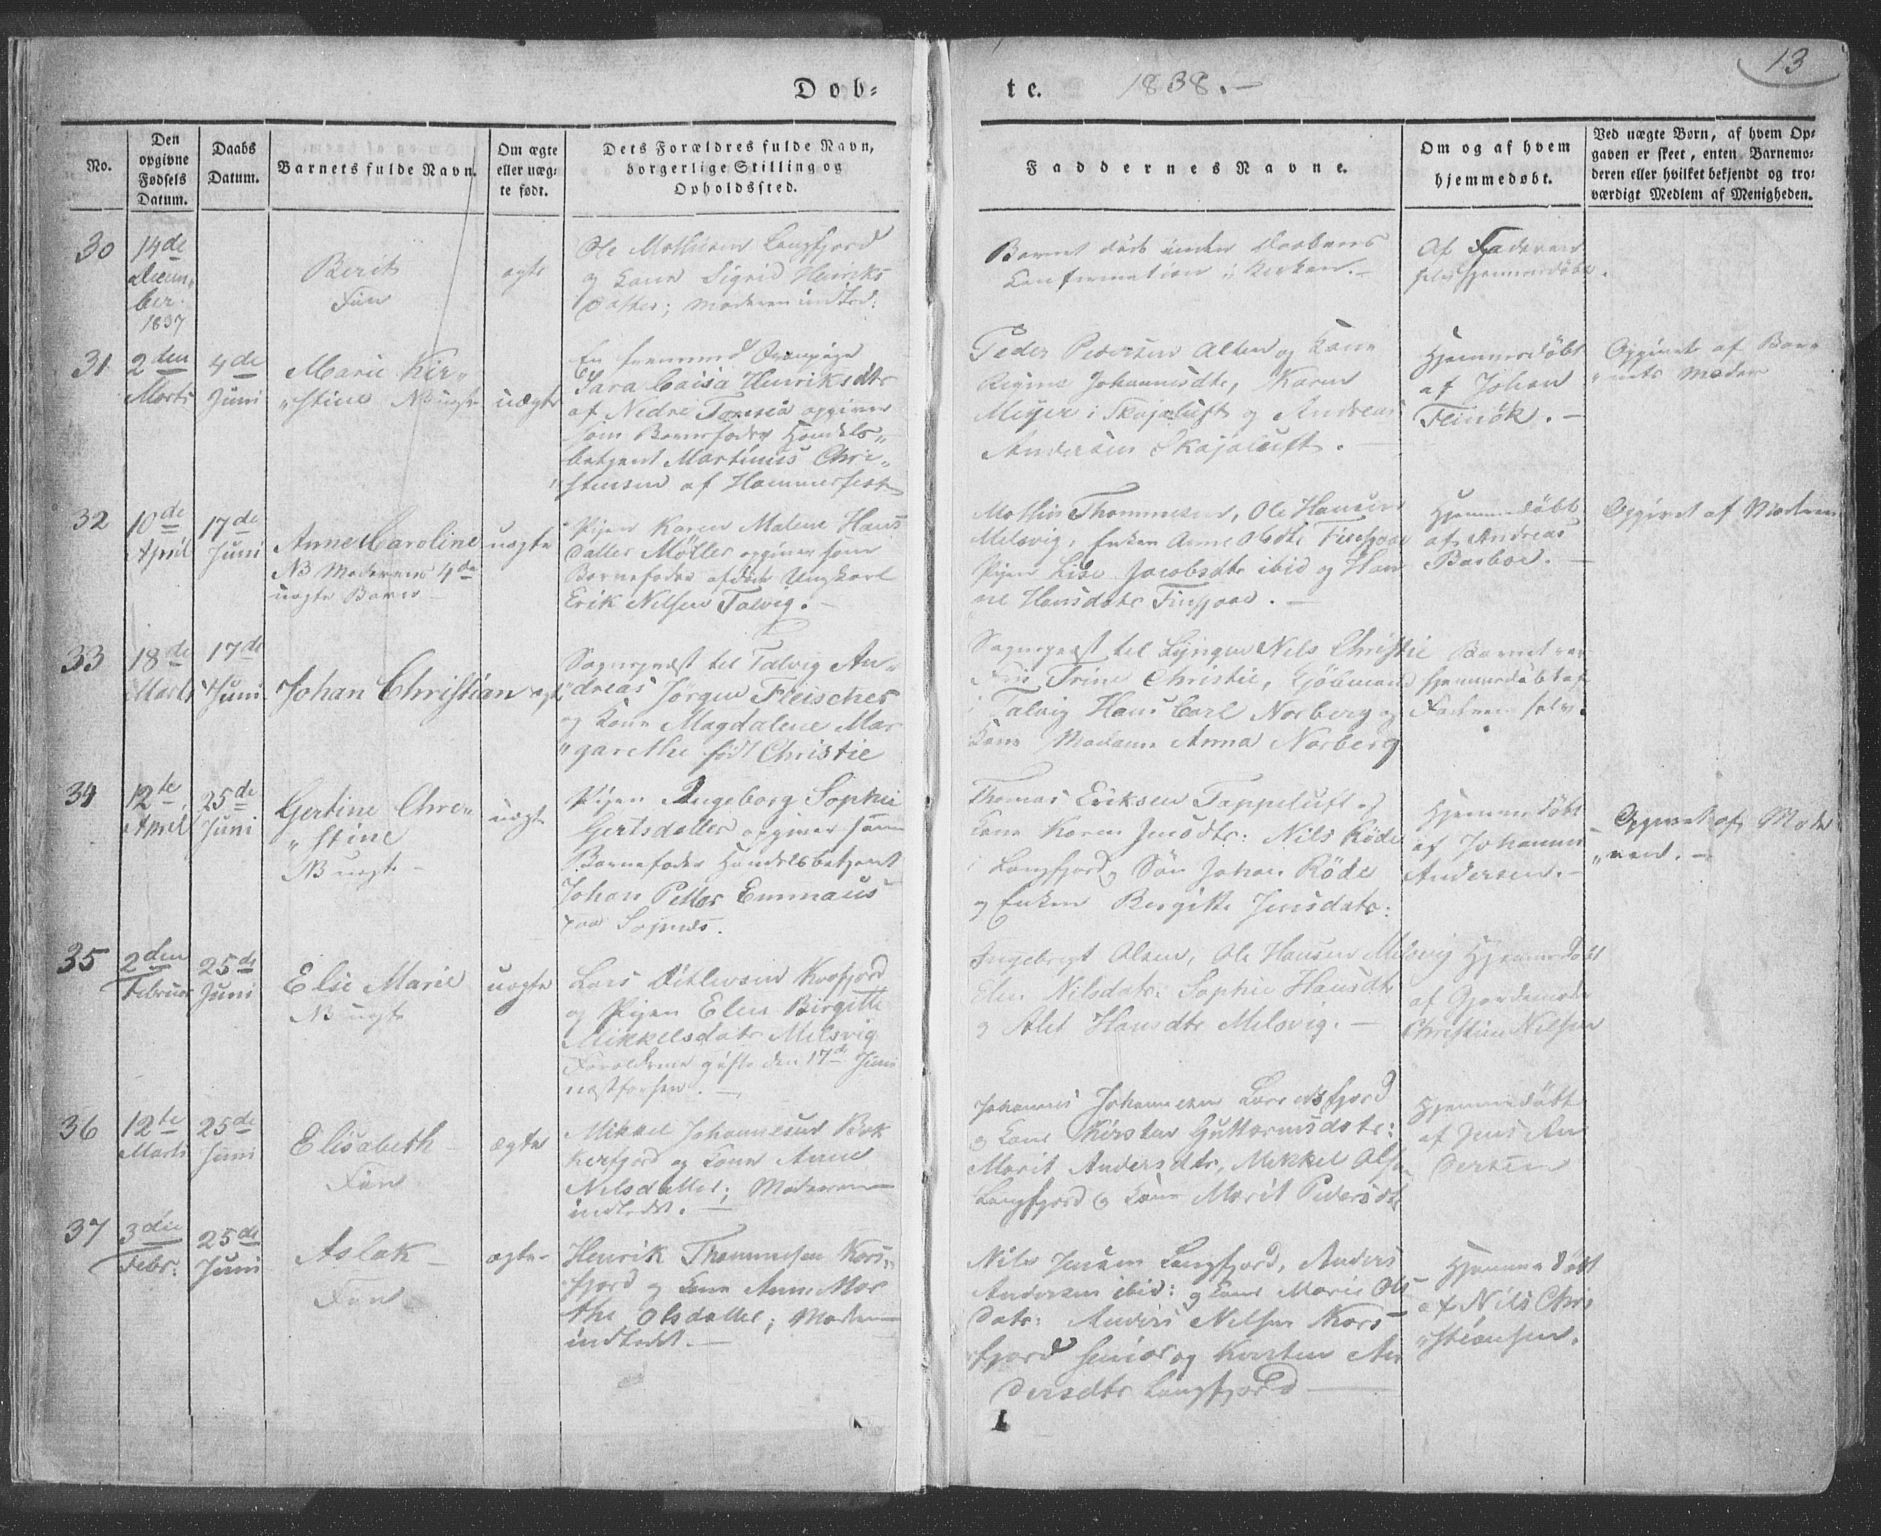 13
Døb=
te. 1838.-
No.
Den opgivne Fødsels Datum.
Daabs Datum.
Barnets fulde Navn.
Om ægte eller uæg-
te født.
Dets Forældres fulde Navn,
borgerlige Stilling og
Opholdssted.
Faddernes Navne.
Om og af hvem
hjemmedøbt.
Ved uægte Børn, af hvem Op-
gaven er skeet, enten Barnemo-
deren eller hvilket bekjendt og tro-
værdigt Medlem af Menigheden.
30
14de
Decem-
ber.
1837
Berit
Fin
ægte
Ole Mathisen Langfjord
og Kone Sigrid Henriks
Datter; Moderen indled:
Barnet døde under Daabens
Confirmation i Kirken.-
Af Faderen
selv hjemmedøbt.
31
2den
Marts
4de
Juni
Marie Kir-
"stine NB uægte
uægte
Sara Caisa Henriksdtr
af Nedre Torneå opgiver
som Barnefader Handels-
betjent Martinus Chri-
"stensen af Hammerfest
Peder Pedersen Alten og Kone
Johannesdtr, Karen
Meyer i Skajaluft og Andreas
Andersen Skajaluft.-
Hjemmedøbt
af Johan
Opgivet af Bar-
"nets Moder
32
10de
April
17de
Juni
Anne Caroline
NB Moderens 4de
uægte Barn -
uægte
Pigen Karen Malene Hans
datter Møller opgiver som
Barnefader afdøde Ungkarl
Erik Nilsen Talvig.-
Mathis Thommesen, Ole Hansen
Melsvig, Enken Anne Olsdtr
Pigen Lise Jacobsdtr ibid og
Hansdatr
Hjemmedøbt
af Andreas
Opgivet af Moderen
33
18de
Marts
17de
Juni
Johan Christian
ægte
Sognepræst til Talvig An-
"dreas Jørgen Fleischer
og Kone Magdalene Mar
"garethe født Christie
Sognepræst til Lyngen Nils Christie
Trine Christie, Kjøbmand
i Talvig Hans Carl Norberg og
Kone Madame Anna Norberg
Barnet var
hjemmedøbt af
Faderen selv.
34
12te
April
25de
Juni
Gertine Chri-
"stine
NB uægte -
uægte
Pigen Ingeborg Sophie
Gertsdatter opgiver som
Barnefader Handelsbetjent
Johan Petter Emmaus
paa
Thomas Eriksen Tappeluft og
Kone Karen Nils Røde
i Langfjord og Søn Johan Røde
og Enken Birgitte Jensdatr:
Hjemmedøbt
af Johannes
Andersen.-
Opgivet af Mode-
"ren.-
35
2den
Februar
25de
Juni
Elsi Marie
NB uægte
uægte
Lars Ditlevsen Kvefjord
og Pigen Elen Birgitte
Mikkelsdatr Melsvig
Forældrene gifte den 17de Juni
næstforhen.-
Ingebrigt Olsen, Ole Hansen Melsvig
Elen Nilsdatr: Sophie Hansdtr
og Alet Hansdtr Melsvig.-
Hjemmedøbt
af Gjordemoder
Christine Nilsen
36
12te
Marts
25de
Juni
Elisabeth -
Fin
ægte
Mikkel Johannesen
og Kone Anne
Nilsdatter; Moderen
indledet.-
Johannes Johannesen
og Kone Kirsten Guttormsdatr:
Marit Andersdtr, Mikkel Olsen
Langfjord og Kone Marit Pedersdtr
Hjemmedøbt
af Jens An
dersen
37
3die
Febr:
25de
Juni
Aslak -
Fin
ægte-
Henrik Thommesen Kors-
"fjord og Kone Anne Mar
the Olsdatter; Moderen
indledet.-
Nils Jensen Langfjord, Anders
Andersen ibid: og Kone Marie Ols
datr: Anders Nilsen Kors
fjord Senior og Kirsten An
dersdtr Langfjord -
Hjemmedøbt
af Nils Chri
"stiansen.